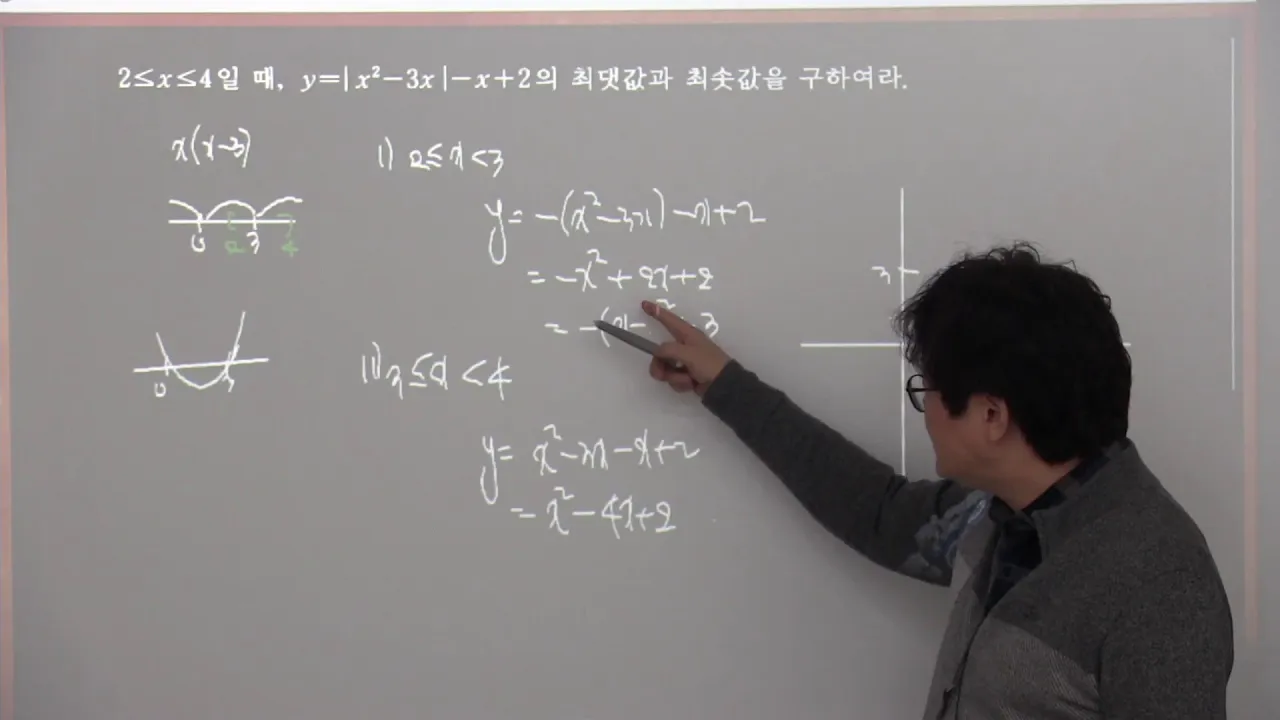 2≤x≤4일 때, y=|x²-3x|-x+2의 최댓값과 최솟값을 구하여라.
x(x-3)
0 2 3 4
i) 2≤x<3
y= -(x²-3x)-x+2
= -x²+2x+2
= -(x- ² 3
3
0 3
ii) 3≤x<4
y= x²-3x-x+2
= x²-4x+2